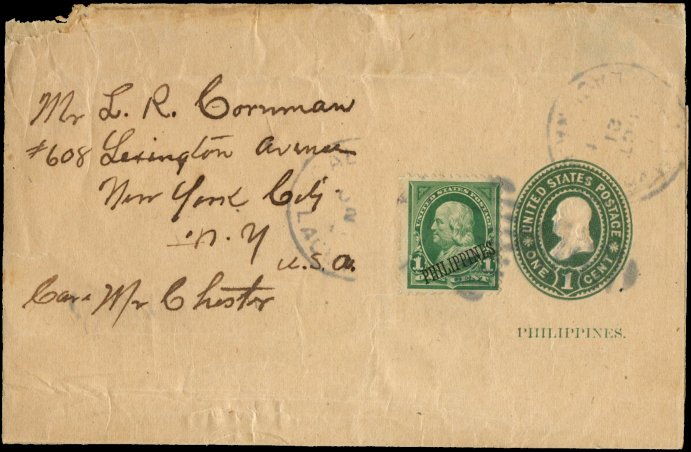 Mr L. R. Cornman
#608 Lexington Avenue
New York City
N. Y
U.S.A.
Care Mr Chester
UNITED STATES POSTAGE
1 1
PHILIPPINES
UNITED STATES POSTAGE
ONE 1 CENT
PHILIPPINES.